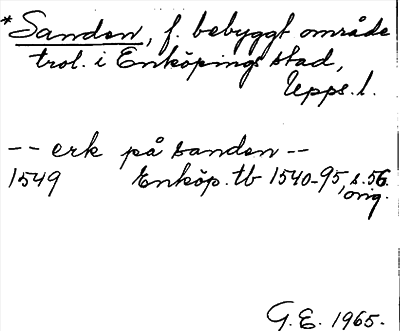 *Sanden, f. bebyggt område
trol. i Enköpings stad,
Upps. l.
-- erk på sanden --
1549 Enköp. tb 1540-95, s. 56.
orig.
G. E. 1965.